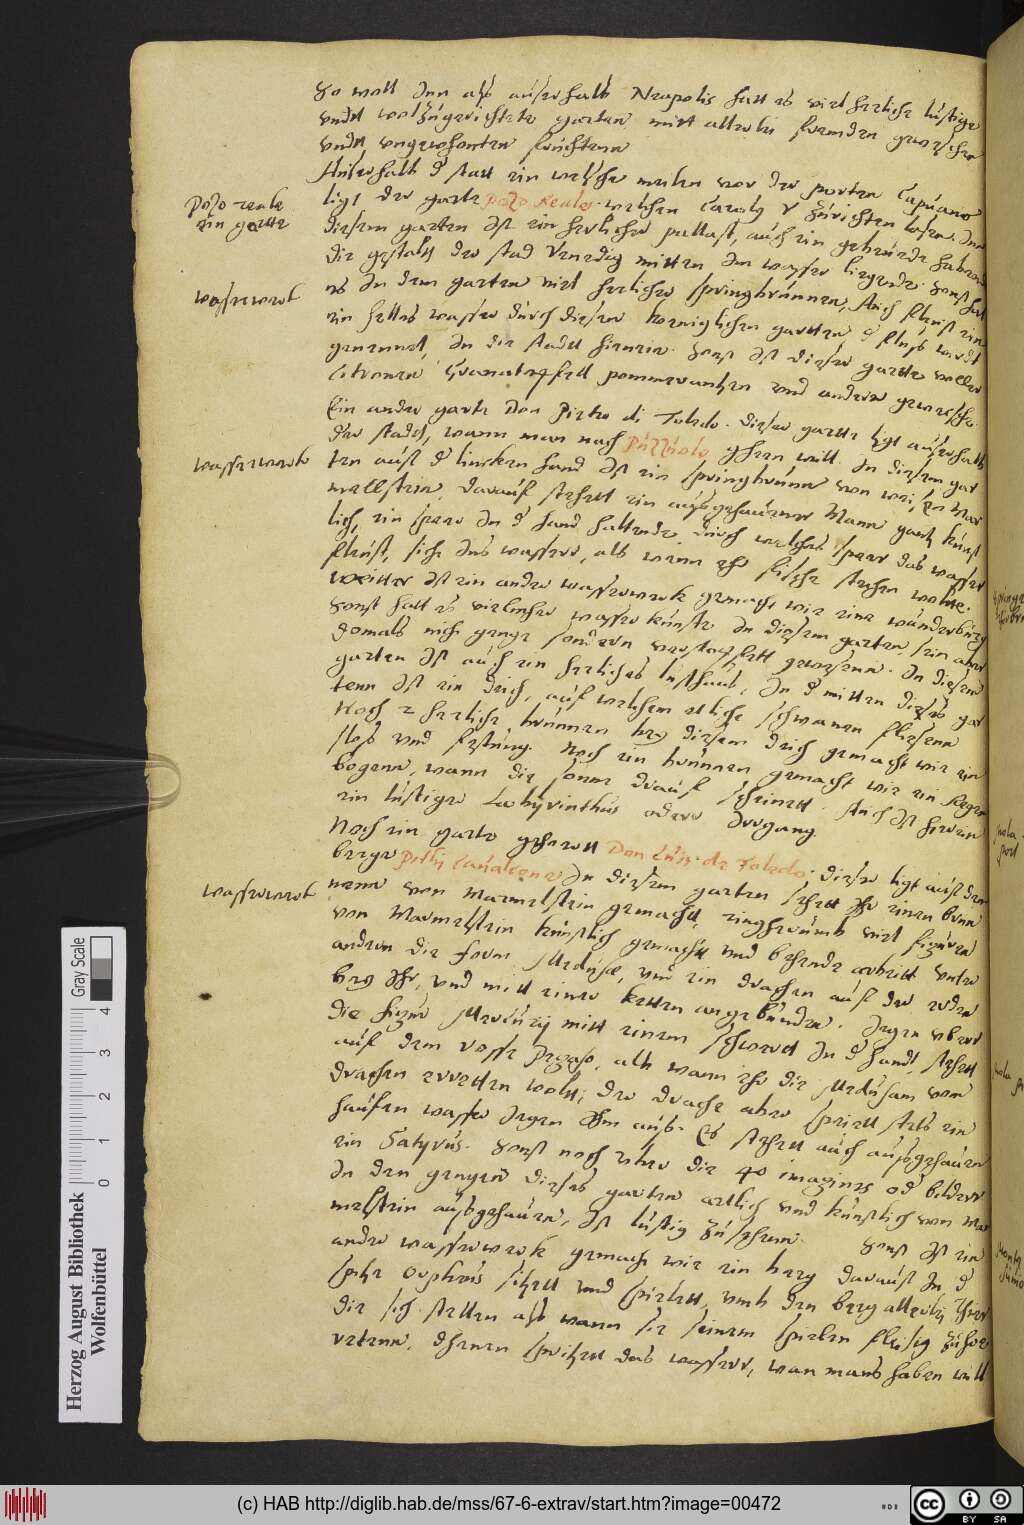 So woll Inn alß ausserhalb Neapolis hatt es viel herliche lustige
undt wolzugerichtete garten mitt allerlei frembden gewechsen
undt ungewohnten fruchten
Ausserhalb d statt ein welsche meilen vor der porten Capuana
ligt der garte Pozo Reale welchen Carolg V zurichten lasen. Inn
Pozo reale
ein gartte
diesem garten Ist ein herlicher pallast, auch ein gebeude habend
die gestaltt der stad Venedig mitten Im wasser liegende. Sonst hat
wasserwerck
es In dem garten viel herlicher springbrunnen, Auch fleust ein
ein helles wasser durch diesen koeniglichen gartten d fluß wirdt
genennet, In die stadtt hienein. Sonst Ist dieser gartte voller
Citronen Granatepfell pommerantzen und andern gewechse.
Ein ander garte Don Pietro di Toledo. dieser gartte ligt ausserhalb
der stadtt, wann man nach Puzzuolo gehen will. In diesem gar
wasserwerck
ten auff d lincken hand Ist ein springbrunn von weissen Mar
mellstein, darauf stehett ein außgehauener Mann gantz kunst
lich, ein speer In d hand haltende, durch welches speer das wasser
fleust, sicht Ins wasser, als wenn er fische stechen wolte.
weitter Ist ein ander wasserwerck gemacht wie eine wunderburg
Sonst hatt es vielmher wasser kunste In diesem garten, sein aber
domals nich genge sondern verstopfett gewesenn. In diesem
garten Ist auch ein herliches lusthaus, In d mitten dieses gar
tenn Ist ein deich, auf welchem etliche schwanen fliesenn
Noch 2 herliche brunnen bey diesem deich gemacht wie ein
sloß und festung. Noch ein brunnen gemacht wie ein Regen
bogenn, wann die sonne drauf scheinett. Auch Ist hierein
ein lustiger Labyrinthus oder Irrgang.
Noch ein garte gehorett Don Luis de Toledo. dieser ligt auf dem
berge In diesem garten sehett Ihr einen brun
wasserwerck
nenn von Marmelstein gemacht, ringherumb viel figuren
von Marmelstein kunstlich gemacht und behende arbeitt unter
andern die form Medusae, und ein drachen auf der erden
bey Ihr, und mitt einer ketten angebunden. Jegen uber
die figur Mercurij mitt einem schwerdt In d handt, stehett
auf dem rosse Pegaso, alß wann ehr die Medusam vom
drachen erretten wolte; der drache aber speiett stets ein
haufen wasser Jegen Ihm auß. Es stehett auch außgehauen
ein Satyrus. Sonst noch uber die 40 imagines od bilder
In den gengen dieses garten artlich und kunstlich von Mar
melstein außgehauen, Ist lustig zusehenn. Sonst Ist ein
ander wasserwerck gemacht wie ein berg darauf In d
spitze Orpheus sitzett und spielett, umb den berg allerlei thier
die sich stellen alß wann sie seinem spielen fleisig zuhoe
retenn, dhenen spritzett das wasser, wan mans haben will
Gray Scale
0 1 2 3 4
Herzog August Bibliothek
Wolfenbüttel
(c) HAB http://diglib.hab.de/mss/67-6-extrav/start.htm?image=00472
BY SA